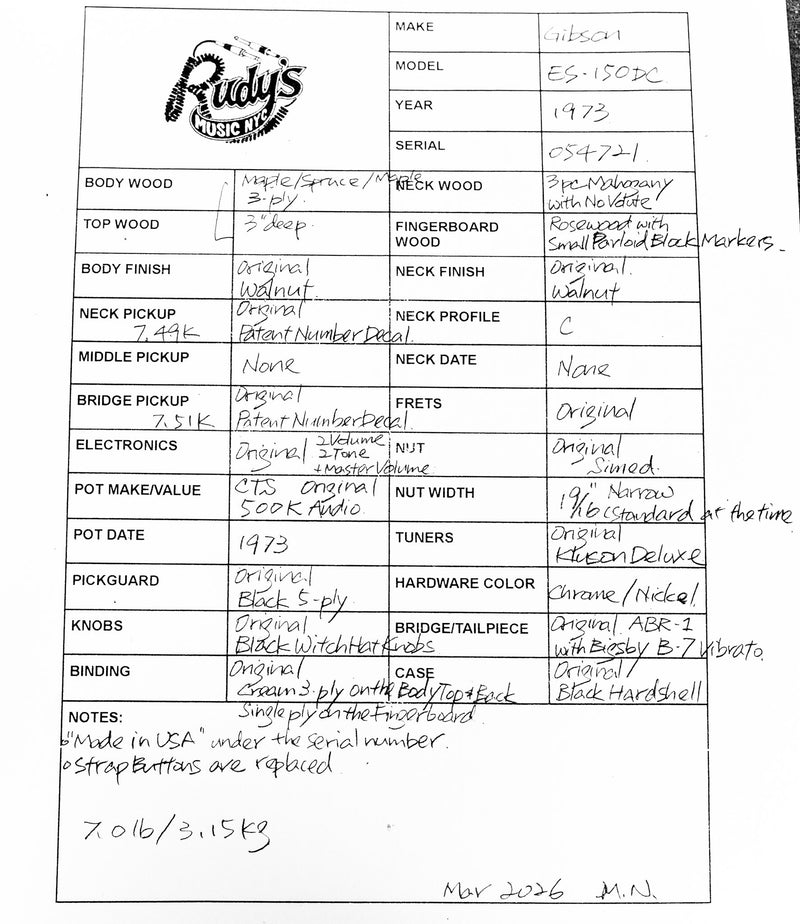 Rudy's
MUSIC NYC
MAKE Gibson
MODEL ES-150DC
YEAR 1973
SERIAL 054721
BODY WOOD Maple/Spruce/Maple
3-ply
NECK WOOD 3pc Mahogany
with No Volute
TOP WOOD 3" deep
FINGERBOARD
WOOD
Rosewood with
Small Parloid Block Markers
BODY FINISH Original
Walnut
NECK FINISH Original
Walnut
NECK PICKUP
7.49K
Original
Patent Number Decal
NECK PROFILE C
MIDDLE PICKUP None
NECK DATE None
BRIDGE PICKUP
7.51K
Original
Patent Number Decal
FRETS Original
ELECTRONICS Original 2 Volume
2 Tone
+ Master Volume
NUT Original
Simed
POT MAKE/VALUE CTS Original
500K Audio
NUT WIDTH 1 9/16" Narrow
(Standard at the time
POT DATE 1973
TUNERS Original
Kluson Deluxe
PICKGUARD Original
Black 5-ply
HARDWARE COLOR Chrome/Nickel
KNOBS Original
Black Witch Hat Knobs
BRIDGE/TAILPIECE Original ABR-1
with Bigsby B-7 Vibrato
BINDING Original
Cream 3-ply on the Body Top & Back
Single ply on the Fingerboard
CASE Original
Black Hardshell
NOTES:
"Made in USA" under the serial number.
Strap Buttons are replaced
7.0lb/3.15kg
Mar 2026 M.N.